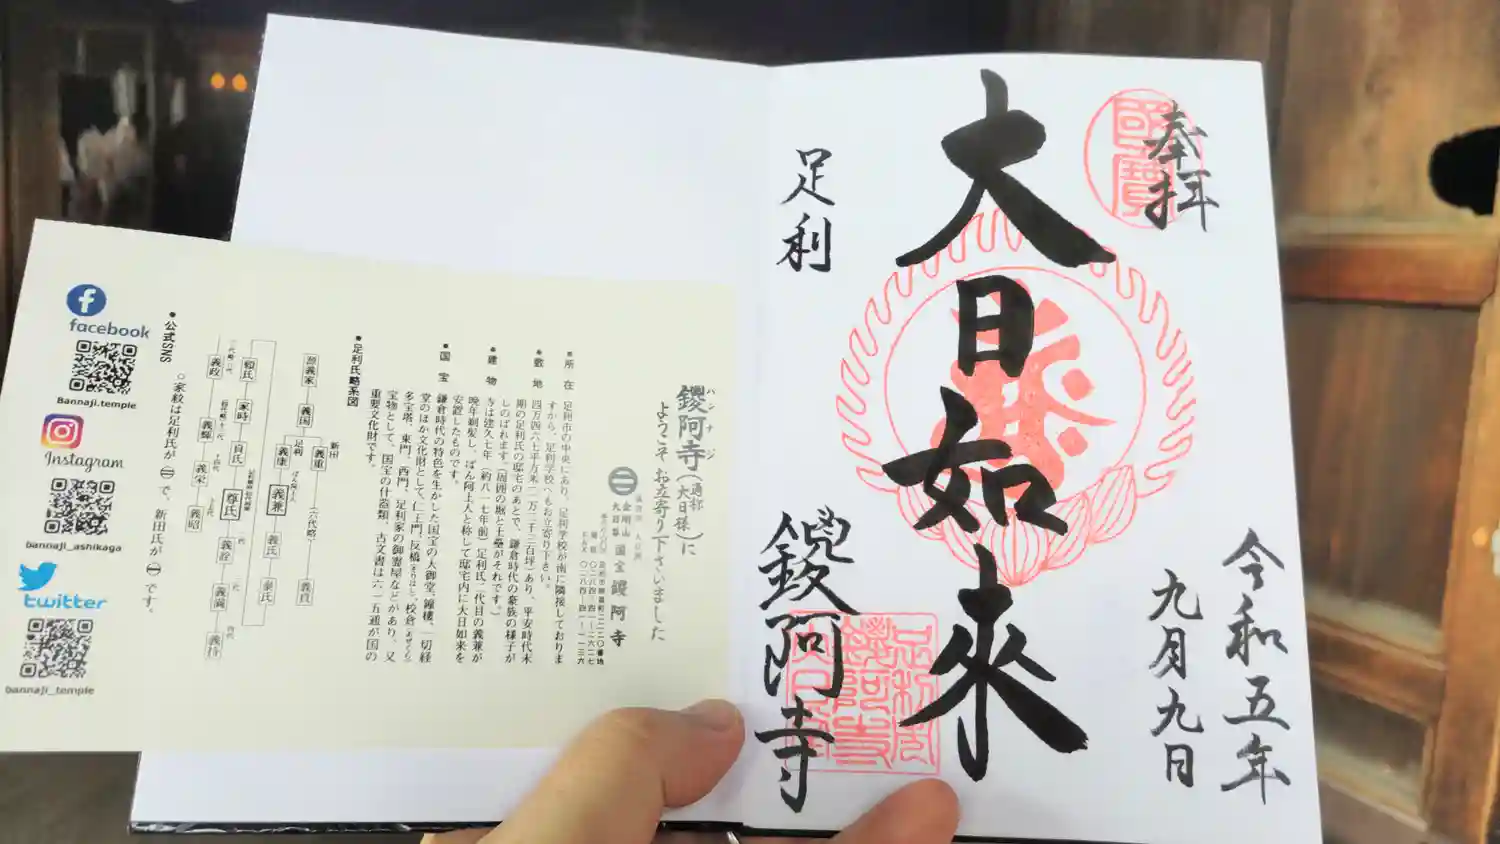 奉拝
國寶
大日如来
足利
鑁阿寺
令和五年
九月九日
鑁阿寺(通称大日様)に
バンナジ
ようこそお立寄り下さいました
金剛山
大日尊 国宝 鑁阿寺
●所在 足利市の中央にあり、足利学校が南に隣接しておりま
すから、足利学校へもお立寄り下さい。
●敷地
期の足利氏の邸宅のあとで、鎌倉時代の豪族の様子が
しのばれます。(周囲の堀と土塁がそれです。)
●建物 寺は建久七年(約八一七年前)足利氏二代目の義兼が
晩年剃髪し、ばん阿上人と称して邸宅内に大日如来を
安置したものです。
●国宝 鎌倉時代の特色を生かした国宝の大御堂、鐘楼、一切経
堂のほか文化財として、仁王門、反橋(そりはし)、校倉(あぜくら)
多宝塔、東門、西門、足利家の御霊屋などがあり、又
宝物として、国宝の什器類、古文書は六一五通が国の
重要文化財です。
●足利氏略系図
源義家
義国
新田
義重
足利
義康
義兼
義氏
泰氏
頼氏
家時
貞氏
尊氏
義詮
義満
義持
義政
義輝
義栄
義昭
●公式SNS
○家紋は足利氏が で、新田氏が です。
facebook
Bannaji.temple
Instagram
bannaji_ashikaga
twitter
bannaji_temple